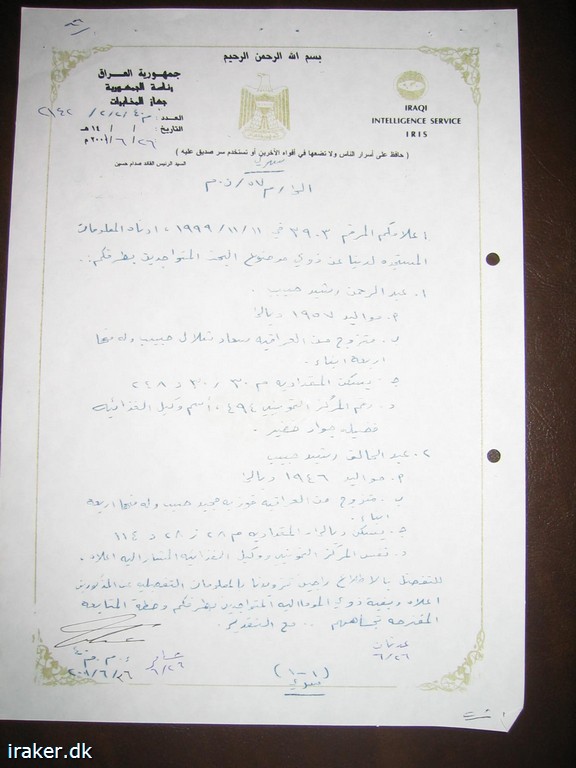 بسم الله الرحمن الرحيم
جمهورية العراق
رئاسة الجمهورية
جهاز المخابرات
العدد:
التاريخ: / / ١٤ هـ
٢٦ / ٦ / ٢٠٠١ م
IRAQI
INTELLIGENCE SERVICE
IRIS
( حافظ على أسرار الناس ولا تضعها في أفواه الآخرين أو تستخدم سر صديق عليه )
السيد الرئيس القائد صدام حسين
سري
اعلامكم المرقم ٣٩٠٣ في ١١/١١/١٩٩٩ ، ادناه المعلومات
المتوفرة لدينا عن ذوي موضوع البحث المتواجدين بطرفكم:.
١. عبد الرحمن رشيد حبيب .
م. مواليد ١٩٥٧ ديالى
ب. متزوج من العراقية سعاد حبيب وله منها
اربعة ابناء.
جـ. يسكن المقدادية م ٣٠ ز ٣٠ د ٢٤٨
د. رقم المركز التمويني ٤٩٤ ، أسم وكيل الغذائية
جواد خضير .
٢. عبد الخالق رشيد حبيب
م. مواليد ١٩٤٦ ديالى
ب. متزوج من العراقية فوزية مجيد حبيب وله منها اربعة
ابناء.
جـ. يسكن ديالى المقدادية م ٢٨ ز ٢٨ د ١١٤
د. نفس المركز التمويني ووكيل الغذائية المشار اليه اعلاه.
للتفضل بالاطلاع راجين تزويدنا بالمعلومات التفصيلية عن المذكورين
اعلاه وبقية ذوي المتواجدين بطرفكم وخطة المتابعة
المقترحة تجاههم .. مع التقدير.
عدنان
٦/٢٦
٦/٢٦
٢٠٠١/٦/٢٦
(١-١)
سري
iraker.dk